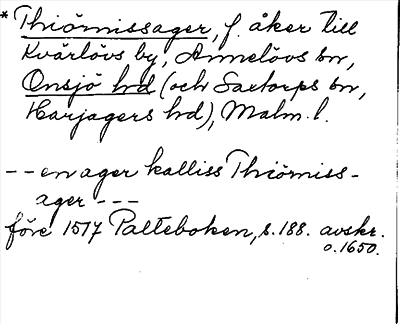 * Thiörnissager, f. åker till
Kvärlövs by, Annelövs sn,
Onsjö hd (och Saxtorps sn,
Harjagers hd), Malm. l.
-- en ager kalliss Thiörniss-
ager ---
före 1517 Palteboken, s. 188. avskr.
o. 1650.